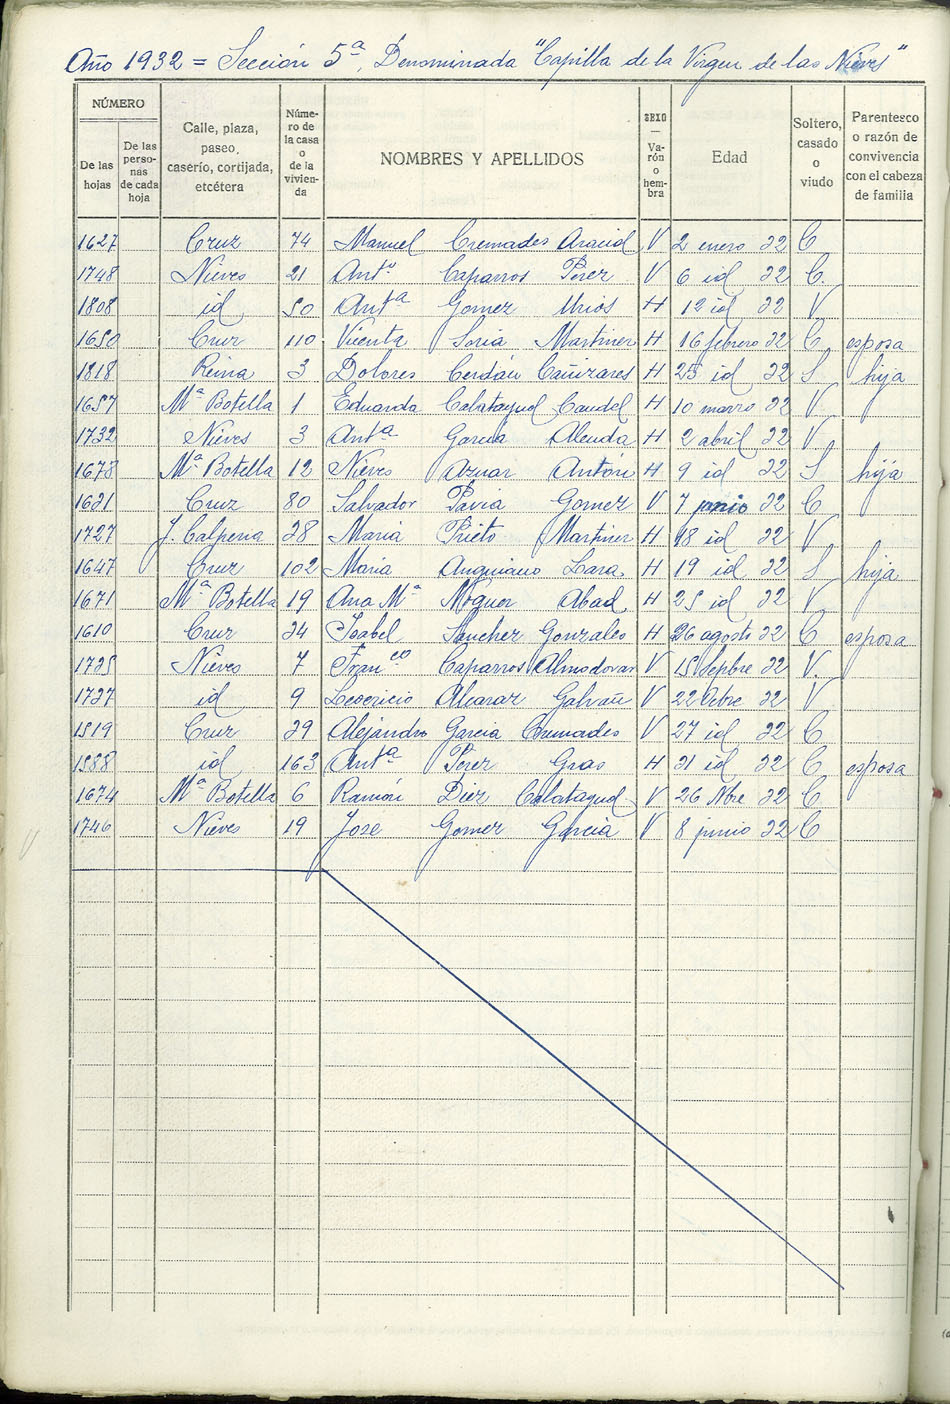 Año 1932 = Sección 5ª, Denominada "Capilla de la Virgen de las Nieves"
NÚMERO
De las hojas
De las perso-nas de cada hoja
Calle, plaza, paseo, caserío, cortijada, etcétera
Núme-ro de la casa o de la vivien-da
NOMBRES Y APELLIDOS
SEXO — Va-rón o hem-bra
Edad
Soltero, casado o viudo
Parentesco o razón de convivencia con el cabeza de familia
1627 Cruz 74 Manuel Cremades Aracid V 2 enero 32 C
1748 Nieves 21 Antº Caparros Perez V 6 id 32 C.
1808 id 50 Antª Gomez Mrios H 12 id 32 V
1650 Cruz 110 Vicenta Soria Martinez H 16 febrero 32 C esposa
1818 Reina 3 Dolores Cerdán Cañizares H 25 id 32 S hija
1657 Mª Botella 1 Eduarda Calatayud Caudel H 10 marzo 32 V
1732 Nieves 3 Antª Garcia H 2 abril 32 V
1678 Mª Botella 12 Nieves Aznar Antón H 9 id 32 S hija
1631 Cruz 80 Salvador Pavia Gomez V 7 junio 32 C
1727 J. Calpena 38 Maria Prieto Martinez H 18 id 32 V
1647 Cruz 102 Maria Anguiano Lara H 19 id 32 S hija
1671 Mª Botella 19 Ana Mª Moguer Abad H 25 id 32 V
1610 Cruz 34 Isabel Sanchez Gonzalez H 26 agosto 32 C esposa
1735 Nieves 7 Franco Caparros Almodovar V 15 Sepbre 32 V.
1737 id 9 Leoericio Alcaraz Galvañ V 22 Obre 32 V
1519 Cruz 39 Alejandro Garcia Cremades V 27 id 32 C
1588 id 163 Antª Perez Gras H 31 id 32 C esposa
1674 Mª Botella 6 Ramón Diez Calatayud V 26 Nbre 32 C
1746 Nieves 19 Jose Gomez Garcia V 8 junio 32 C